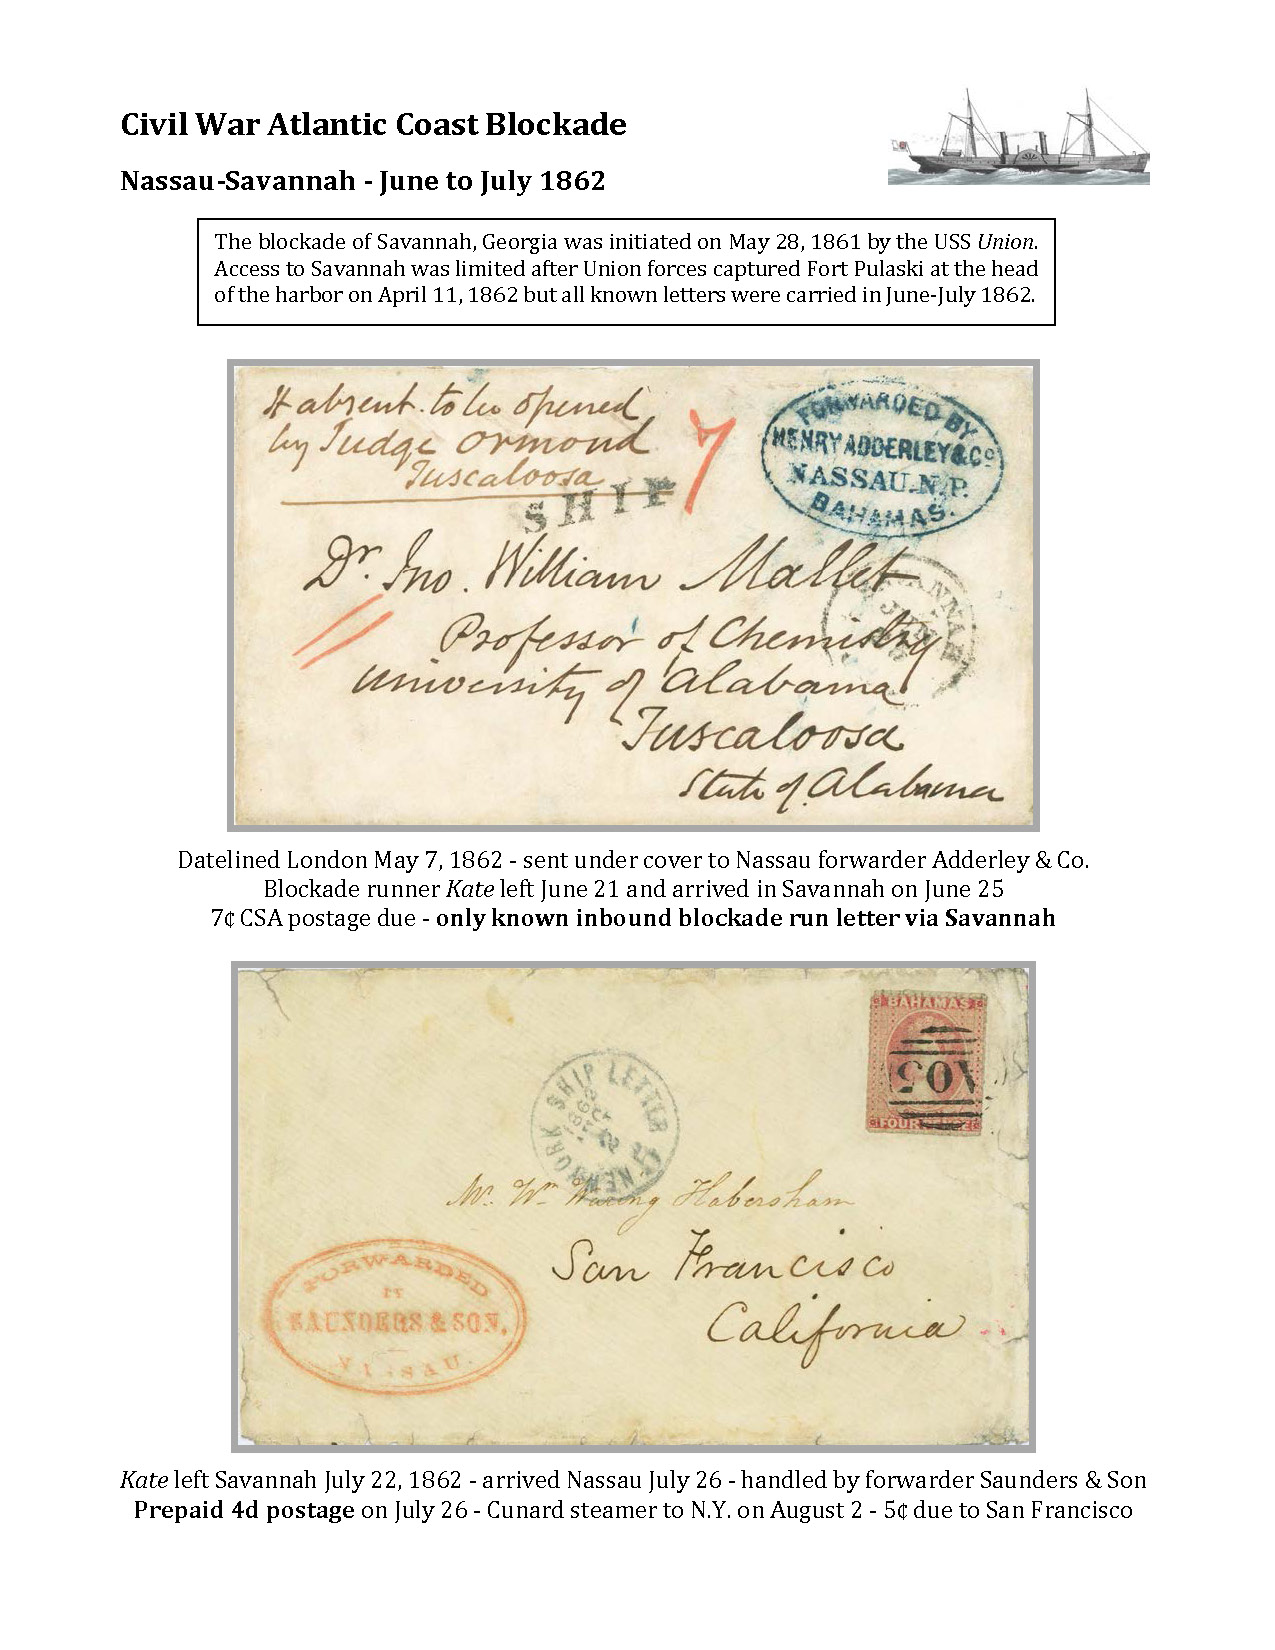 Civil War Atlantic Coast Blockade
Nassau-Savannah - June to July 1862
The blockade of Savannah, Georgia was initiated on May 28, 1861 by the USS Union.
Access to Savannah was limited after Union forces captured Fort Pulaski at the head
of the harbor on April 11, 1862 but all known letters were carried in June-July 1862.
If absent to be opened
by Judge Ormond
Tuscaloosa
7
SHIP
FORWARDED BY
HENRY ADDERLEY & Co
NASSAU. N.P.
BAHAMAS.
Dr. Jno. William Mallet
Professor of Chemistry
University of Alabama
Tuscaloosa
State of Alabama
Datelined London May 7, 1862 - sent under cover to Nassau forwarder Adderley & Co.
Blockade runner Kate left June 21 and arrived in Savannah on June 25
7¢ CSA postage due - only known inbound blockade run letter via Savannah
BAHAMAS
A05
FOUR PENCE
NEW YORK SHIP LETTER
5
Mr. Wm Waring Habersham
San Francisco
California
FORWARDED
BY
SAUNDERS & SON,
NASSAU.
Kate left Savannah July 22, 1862 - arrived Nassau July 26 - handled by forwarder Saunders & Son
Prepaid 4d postage on July 26 - Cunard steamer to N.Y. on August 2 - 5¢ due to San Francisco